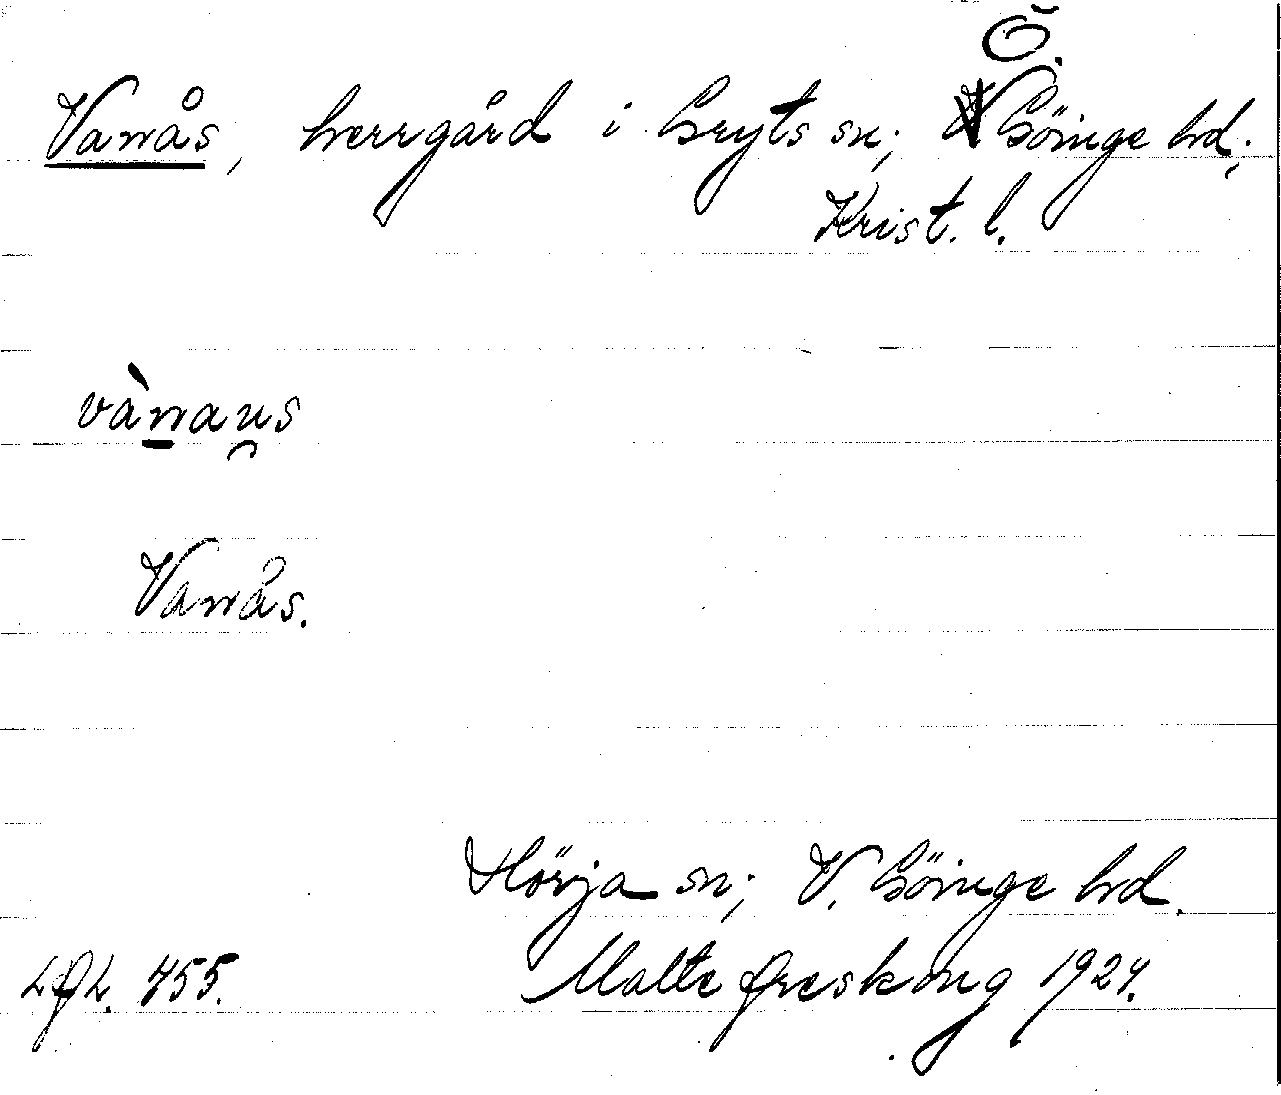 Ö.
Vanås, herrgård i Gryts sn; Göinge hd;
Krist. l.
vànau̯s
Vanås.
Hörja sn; V. Göinge hd.
LAL. 455. Malte Areskoug 1924.